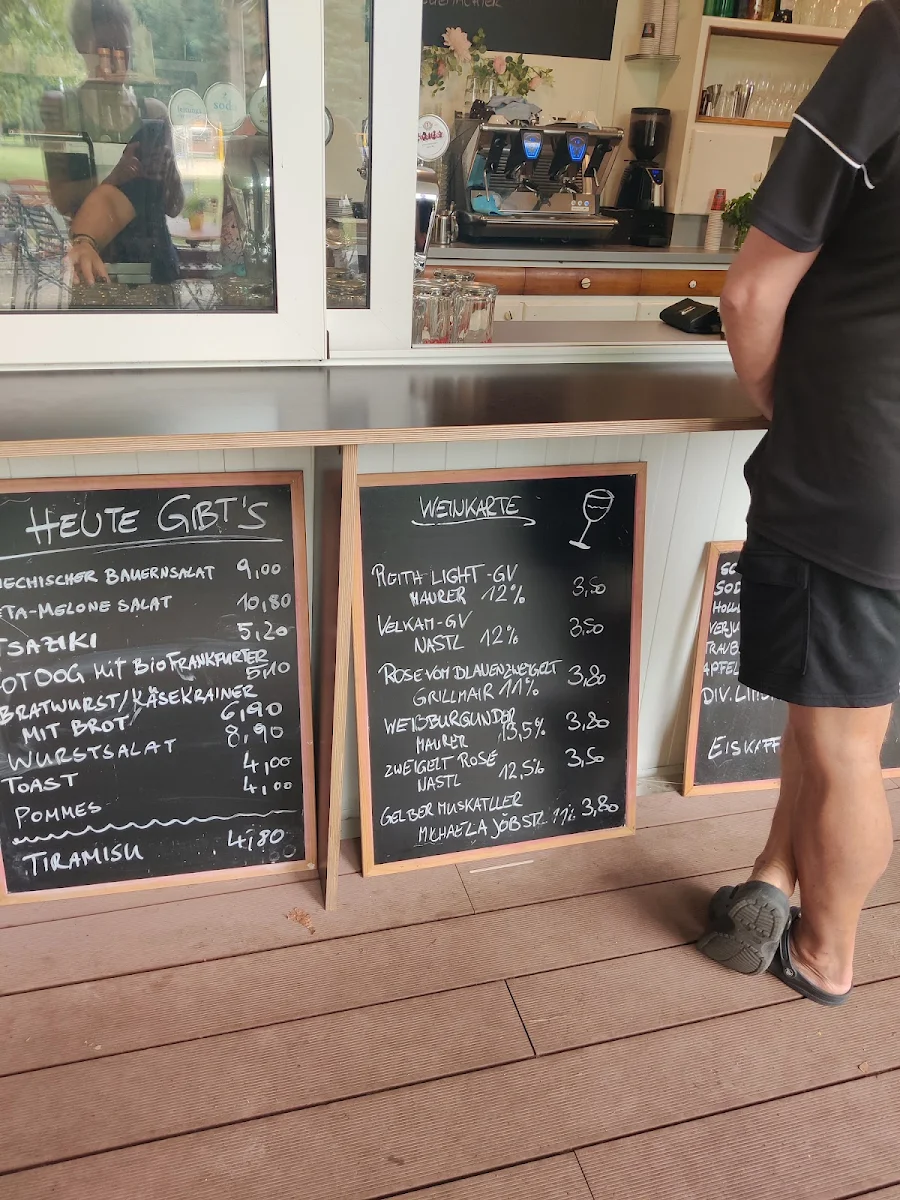 HEUTE GIBT'S
IECHISCHER BAUERNSALAT 9,00
ETA-MELONE SALAT 10,80
TSAZIKI 5,20
OT DOG MIT BIO FRANKFURTER 5,10
BRATWURST/KÄSEKRAINER
MIT BROT 6,90
WURSTSALAT 8,90
TOAST 4,00
POMMES 4,00
TIRAMISU 4,80
WEINKARTE
REITH LIGHT-GV
MAURER 12% 3,50
VELKAM-GV
NASTL 12% 3,50
ROSE VOM BLAUENZWEIGELT
GRILLMAIR 11% 3,80
WEIßBURGUNDER
MAURER 13,5% 3,80
ZWEIGELT ROSÉ
NASTL 12,5% 3,50
GELBER MUSKATLLER
MICHAELA JÖBSTL 11% 3,80
SOD
HOLL
VERJU
TRAUB
APFEL
DIV. LIM
EISKAFF